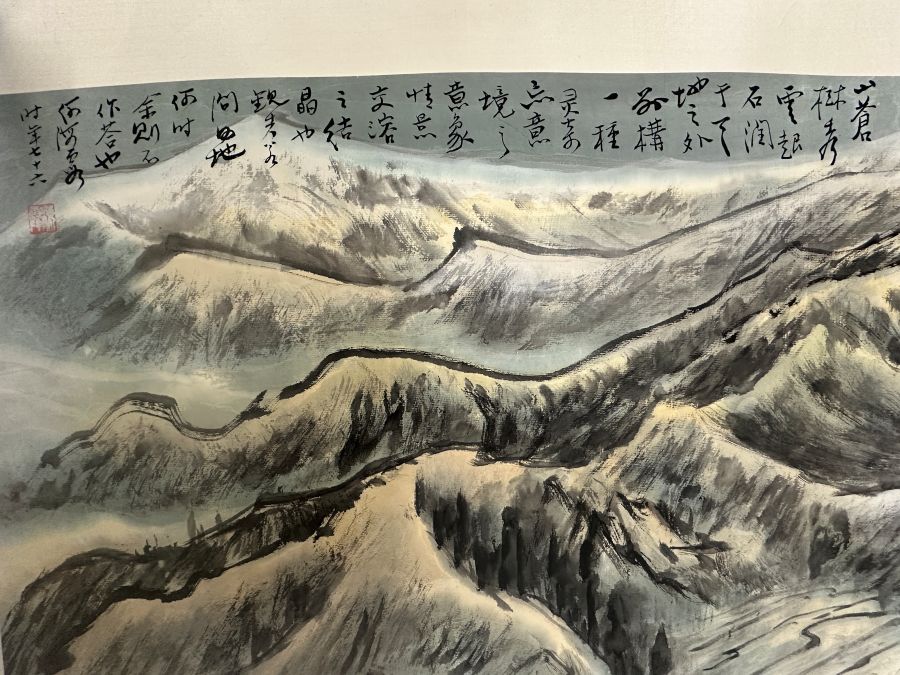 山蒼
樹秀
雲起
石潤
于天
地之外
構
一種
灵奇
意
境之
意象
情景
交溶
之结
晶也
觀者若
問此地
何时
余则不
作答也
何海霞
时年七十六